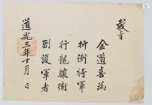 教旨
金道喜為
折衝將軍
行龍驤衛
副護軍者
道光三年十月　日